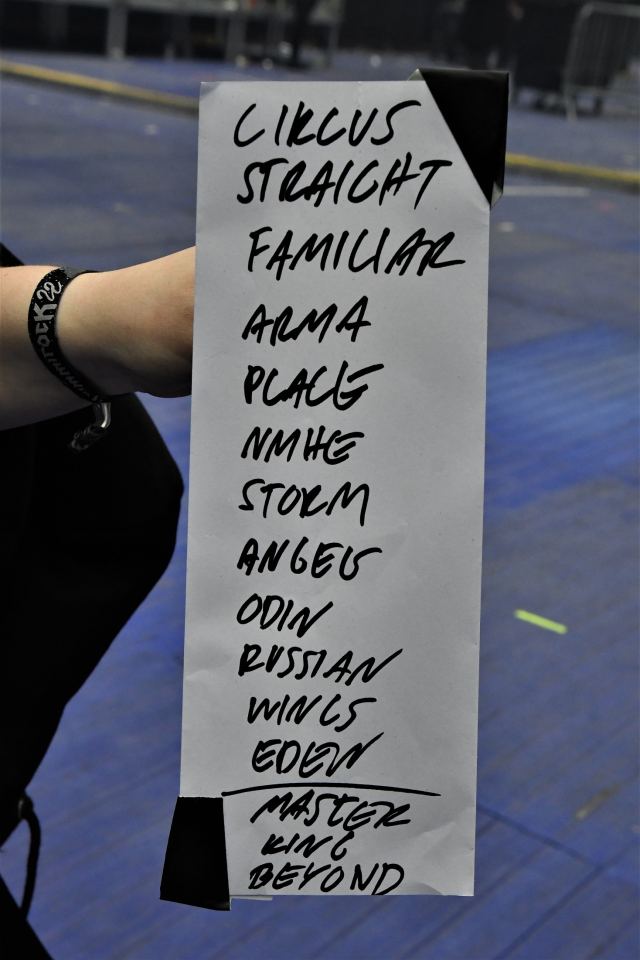 CIRCUS
STRAIGHT
FAMILIAR
ARMA
PLACE
NMHE
STORM
ANGEL
ODIN
RUSSIAN
WINGS
EDEN
MASTER
KING
BEYOND